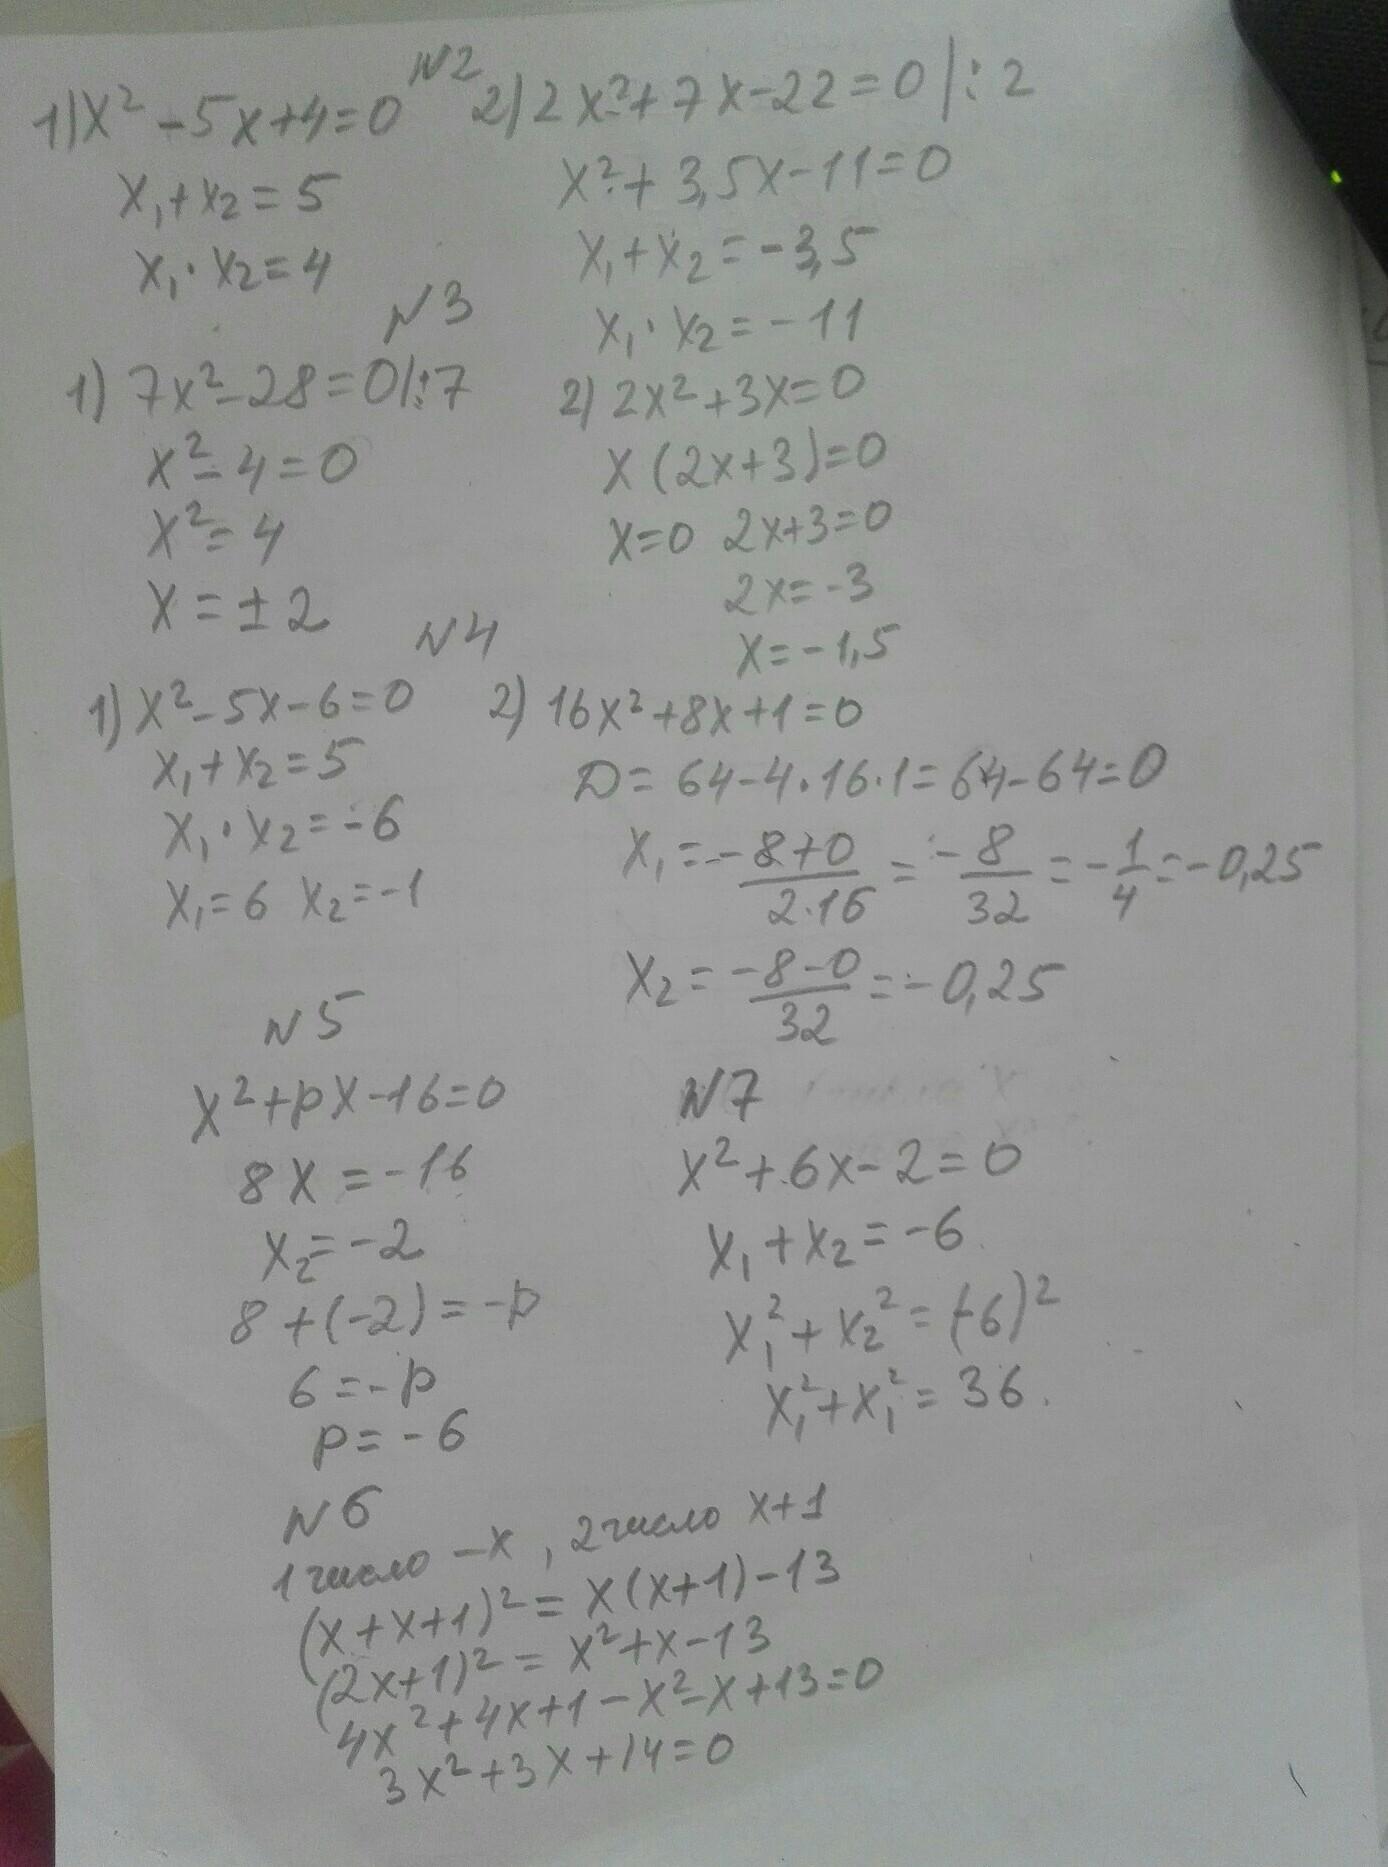 N2
1) x² - 5x + 4 = 0
x₁ + x₂ = 5
x₁ · x₂ = 4
2) 2x² + 7x - 22 = 0 |: 2
x² + 3,5x - 11 = 0
x₁ + x₂ = -3,5
x₁ · x₂ = -11
N3
1) 7x² - 28 = 0 |:7
x² - 4 = 0
x² = 4
x = ± 2
2) 2x² + 3x = 0
x (2x + 3) = 0
x = 0 2x + 3 = 0
2x = -3
x = -1,5
N4
1) x² - 5x - 6 = 0
x₁ + x₂ = 5
x₁ · x₂ = -6
x₁ = 6 x₂ = -1
2) 16x² + 8x + 1 = 0
D = 64 - 4 · 16 · 1 = 64 - 64 = 0
x₁ = -8+0/2·16 = -8/32 = -1/4 = -0,25
x₂ = -8-0/32 = -0,25
N5
x² + px - 16 = 0
8x = -16
x₂ = -2
8 + (-2) = -p
6 = -p
p = -6
N7
x² + 6x - 2 = 0
x₁ + x₂ = -6
x₁² + x₂² = (-6)²
x₁² + x₁² = 36.
N6
1 число - x, 2 число x+1
(x + x + 1)² = x(x+1) - 13
(2x+1)² = x² + x - 13
4x² + 4x + 1 - x² - x + 13 = 0
3x² + 3x + 14 = 0